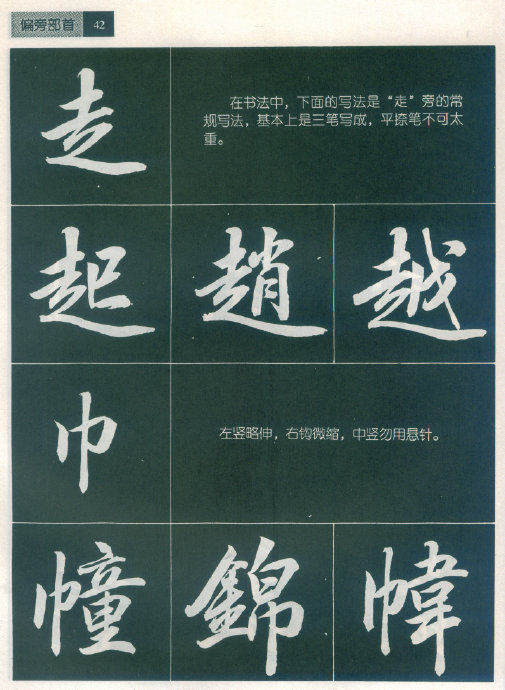 偏旁部首 42
走
在书法中，下面的写法是“走”旁的常
规写法，基本上是三笔写成，平捺笔不可太
重。
起 趙 越
巾
左竖略伸，右钩微缩，中竖勿用悬针。
幢 錦 幃